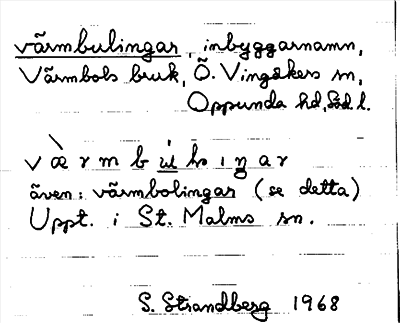 värmbulingar, inbyggarnamn,
Värmbols bruk, Ö. Vingåkers sn,
Oppunda hd, Söd l.
v æ̀ r m b ú l ı ŋ a r
även: värmbolingar (se detta)
Uppt. i St. Malms sn.
S. Strandberg 1968